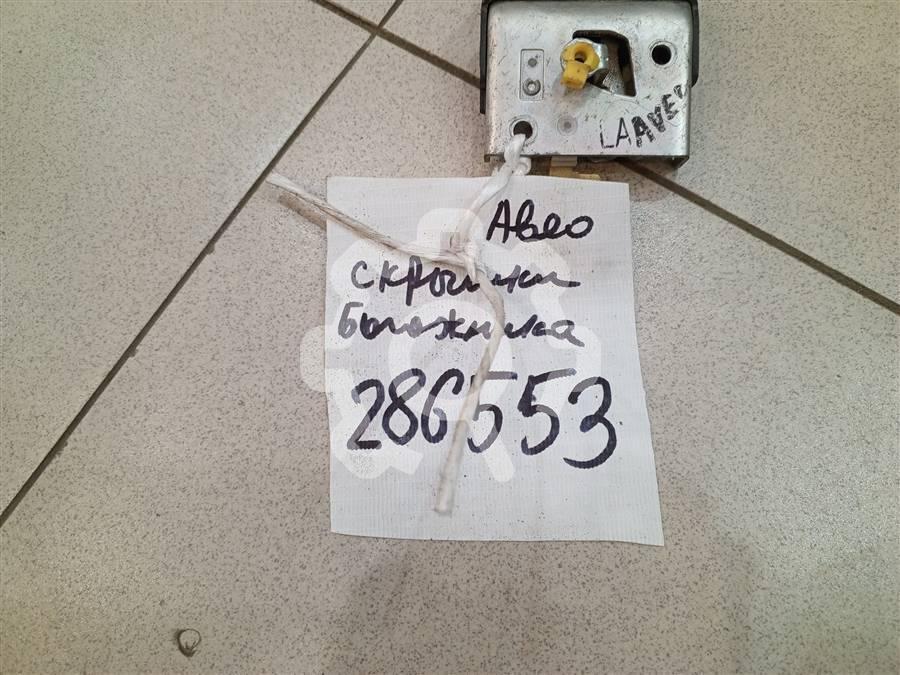 LAAVEO
Авео
с крышки
багажника
286553